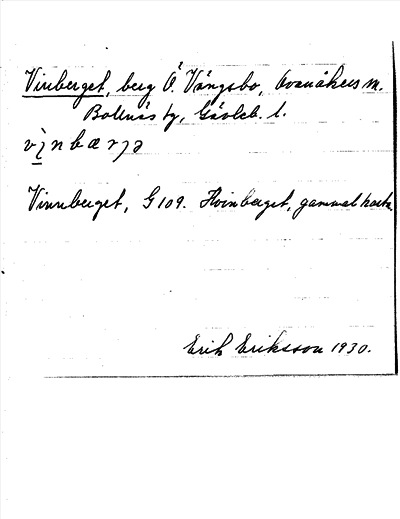 Vinberget, berg Ö. Vängsbo, Ovanåkers sn.
Bollnäs tg, Gävleb. l.
vìnbærjə
Vinnberget, G 109. Hvinberget, gammal karta
Erik Eriksson 1930.